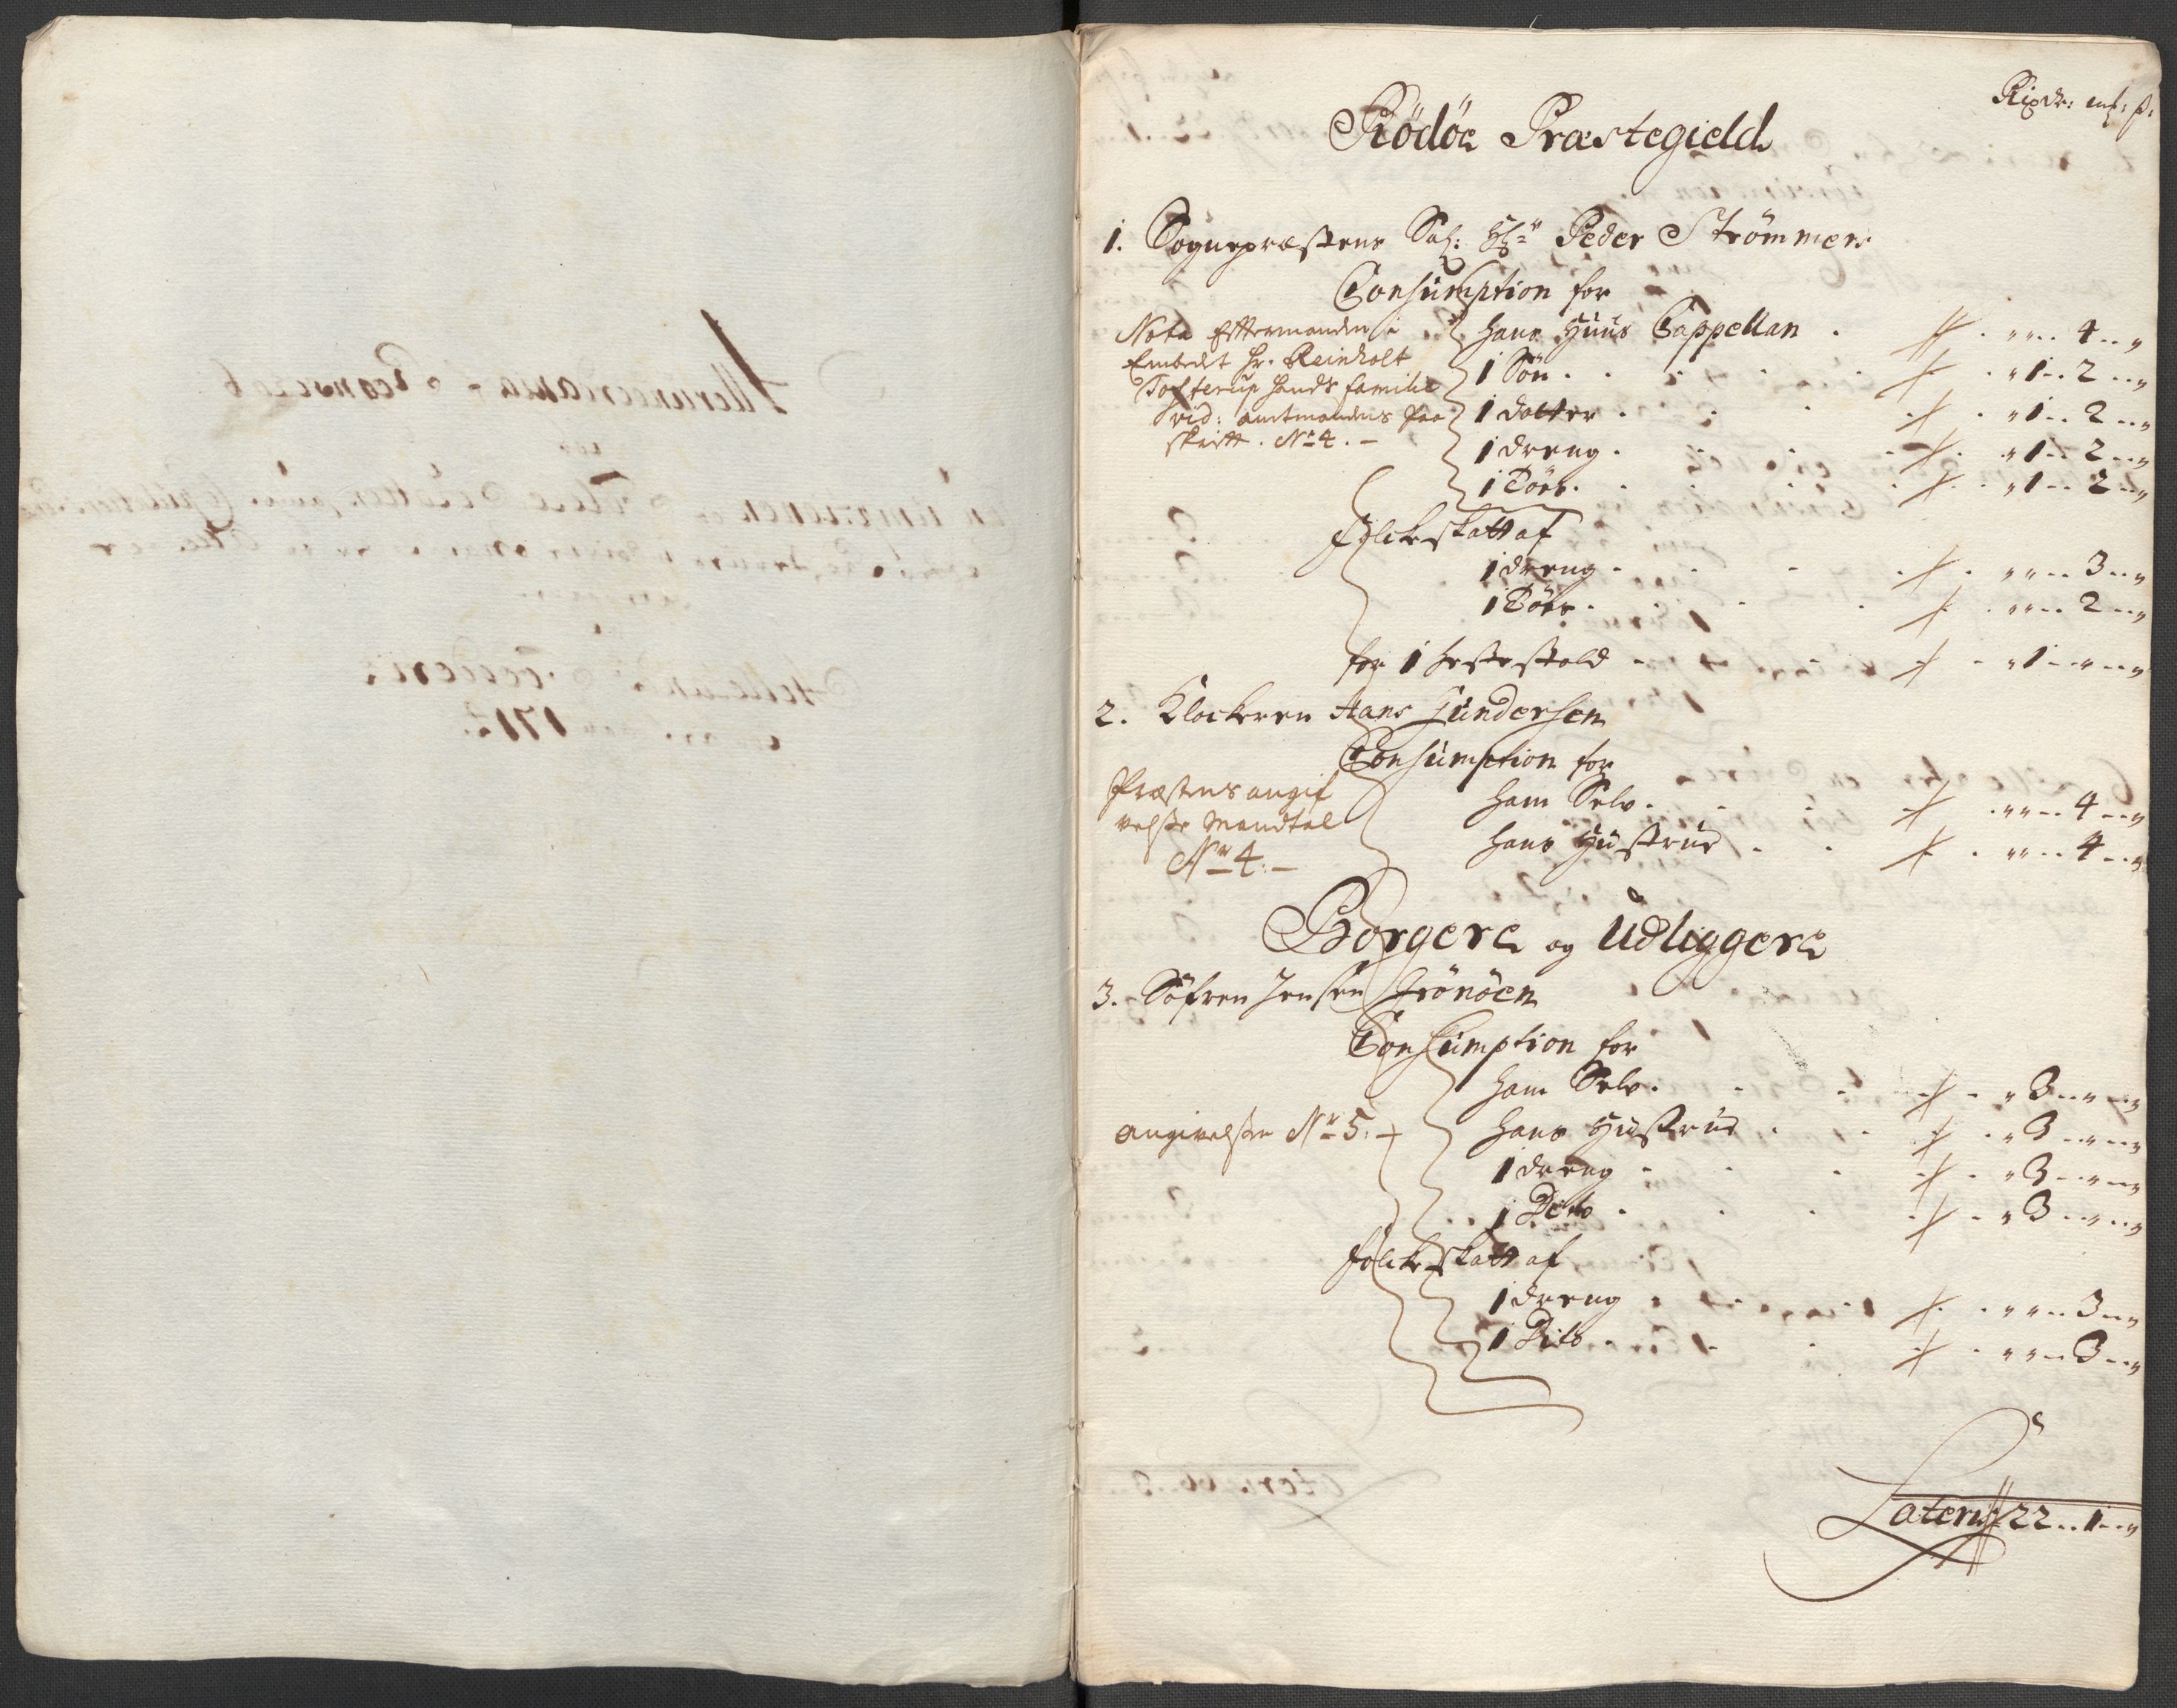 Rixdr: mk: ß:
Rödöe Præstegield
1. Sognepræstens Sal: Hr Peder Strömmers
Consumption for
Nota Efttermanden i
Embedt hr. Reinholt
Tofterup hands familie
vid: amtmandens paa
skrift. No 4. –
hans Huus Cappellan . . „ „ .. 4 .. „
1 Sön . . . . „ 1 .. 2 .. „
1 dotter . . . . „ 1 .. 2 .. „
1 dreng . . . . „ 1 .. 2 .. „
1 Töes . . . . „ 1 .. 2 .. „
folckeskatt af
1 dreng . . . . „ „ .. 3 .. „
1 Töes . . . . „ „ .. 2 .. „
for 1 hestehold . . . „ 1 .. „ .. „
2. Klockeren Hans Gundersen
Consumption for
Præstens angif
velsse Mandtal
No 4. –
ham Selv . . . „ „ .. 4 .. „
hans Hustrue . . . „ „ .. 4 .. „
Borgere og Udliggere
3. Söfren Jensen Grönöen
Consumption for
angivelsen No 5. –
ham Selv . . . „ 3 .. „ .. „
hans Hustrue . . . „ 3 .. „ .. „
1 dreng . . . „ 3 .. „ .. „
1 Dito . . . „ 3 .. „ .. „
folckeskatt af
1 dreng . . . „ „ .. 3 .. „
1 Dito . . . „ „ .. 3 .. „
Lateris 22 .. 1 .. „